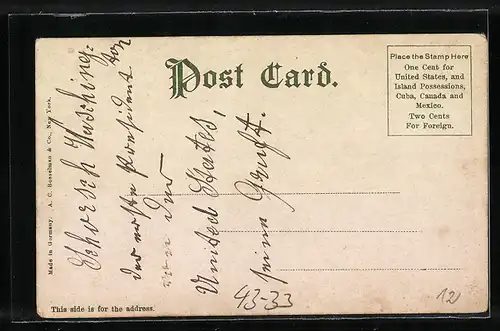 Post Card.
Place the Stamp Here
One Cent for
United States, and
Island Possessions,
Cuba, Canada and
Mexico.
Two Cents
For Foreign.
Made in Germany. A. C. Bosselman & Co., New York.
Schorsch Washing-
ton
der erste Präsident
von den
United States,
seine Gruft.
This side is for the address.
43-33
12